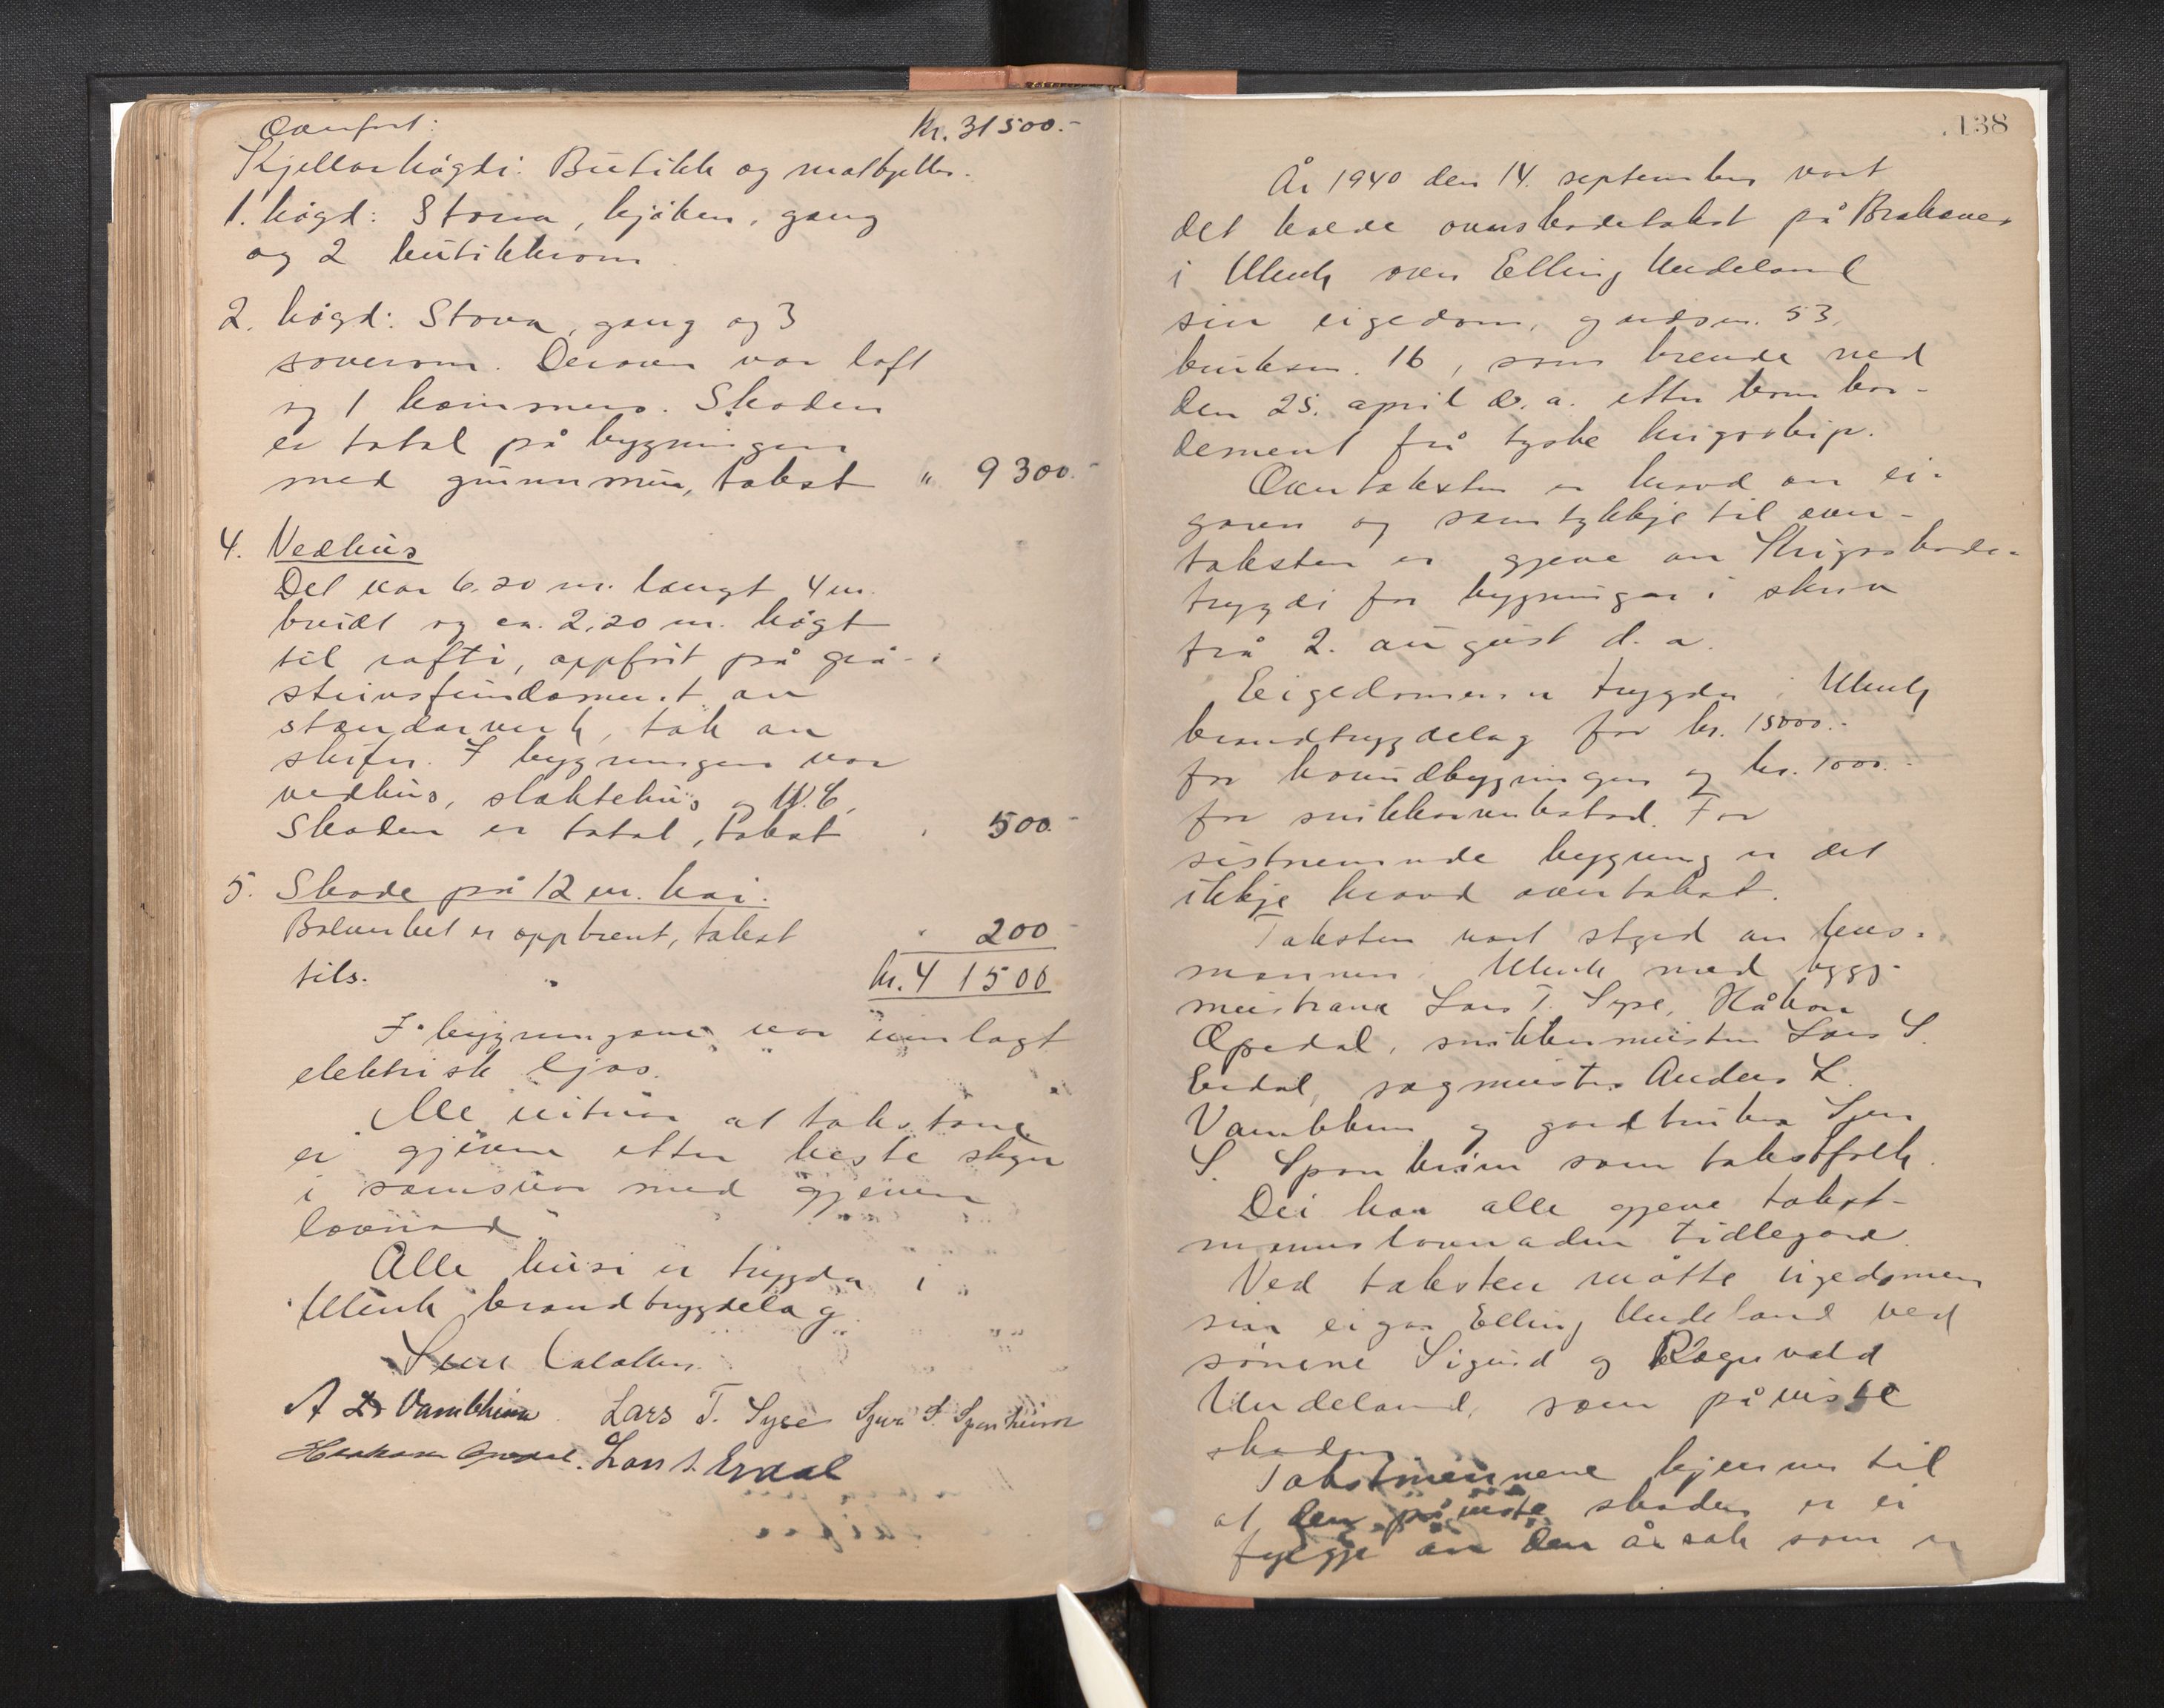 Overført: kr. 31500.-
Kjellarhøgdi: Butikk og matkjeller.
1. høgd: Stova, kjøken, gang
og 2 butikkrom
2. høgd: Stova, gang og 3
soverom. Derover var loft
og 1 kammers. Skaden
er total på bygningen
med grunnmur, takst " 9300.-
4. Vedhus
Det var 6.20 m. langt 4 m.
breidt og ca. 2,20 m. høgt
til rafti, oppført på grå-
steinsfundament av
standarverk, tak av
skifer. I bygningen var
vedhus, slaktehus og W.C.
Skaden er total, takst " 500.-
5. Skade på 12 m. kai.
Bolverket er oppbrent, takst " 200-
tils. kr. 41500
I bygningane var innlagt
elektrisk ljos.
Me vitnar at takstane
er gjevne etter beste skyn
i samsvar med gjeven
lovnad
Alle husi er trygda i
Ulvik brandtrygdelag.
A L Vambheim Lars T. Syse Sjur S. Sponheim
Haakon Opedal. Lars S. Erdal
138
År 1940 den 14. september vart
det halde overskadetakst på Brakanes
i Ulvik over Elling Undeland
sin eigedom, gardsnr. 53,
bruksnr. 16, som brende ned
den 25. april d. a. etter bombar-
dement frå tyske krigsskip.
Overtaksten er kravd av ei-
garen og samtykkje til over-
taksten er gjeve av Krigsskade-
trygdi for bygningar i skriv
frå 2. august d. a.
Eigedomen er trygda i Ulvik
brandtrygdelag for kr. 15000.-
for hovudbygningen og kr. 1000.-
for snikkarverkstad. For
sistnemnde bygning er det
ikkje kravd overtakst.
Taksten vart styrd av lens-
mannen i Ulvik med bygg-
meistrane Lars T. Syse, Håkon
Opedal, snikkermeister Lars S.
Erdal, sagmeister Anders L.
Vambheim og gardbrukar Sjur
S. Sponheim som takstfolk.
Dei har alle gjeve takst-
mannslovnaden tidlegare.
Ved taksten møtte eigedomen
sin eigar Elling Undeland ved
sønene Sigurd og Ragnvald
Undeland, som påviste
skaden.
Takstmennene kjenner til
at den påviste skaden er ei
fylgje av den årsak som er